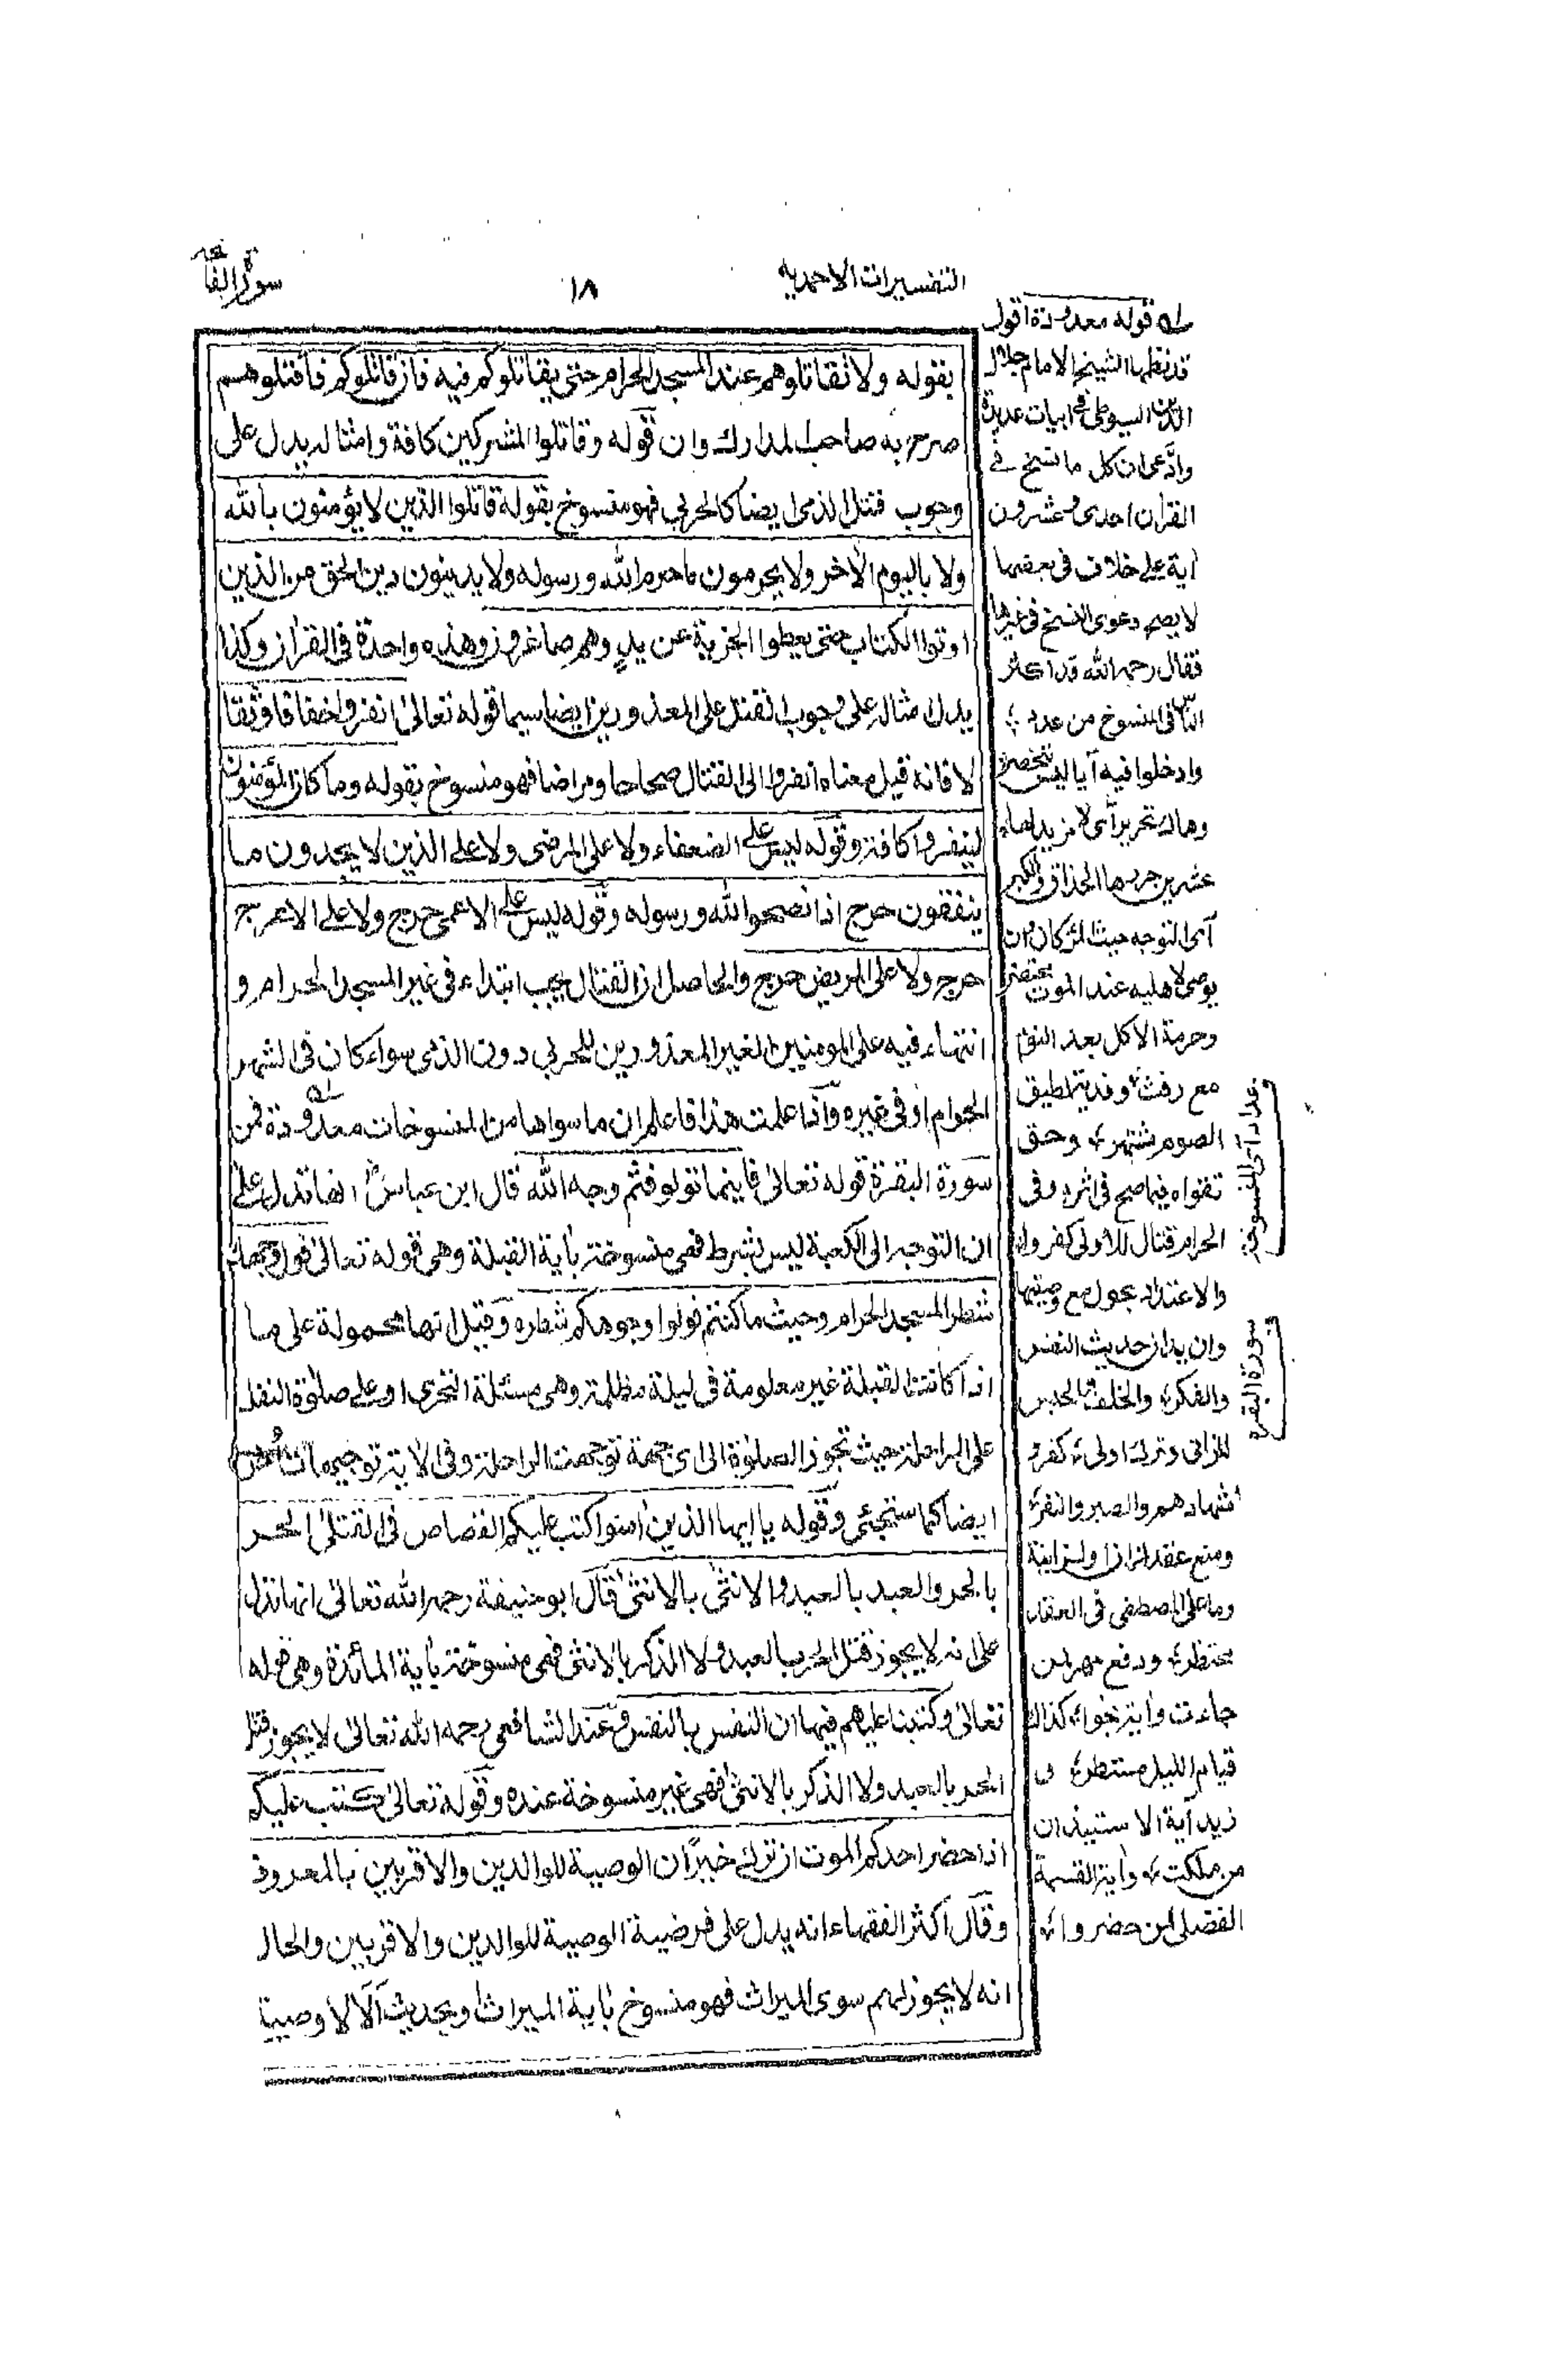 التفسيرات الاحمديه
١٨
سورة الفاتحه
بقوله ولا تقاتلوهم عند المسجد الحرام حتى يقاتلوكم فيه فان قاتلوكم فاقتلوهم
صرح به صاحب المدارك وان قوله وقاتلوا المشركين كافة وامثاله يدل على
وجوب قتل الذمى ايضا كالحربى فهو منسوخ بقوله قاتلوا الذين لا يؤمنون بالله
ولا باليوم الاخر ولا يحرمون ما حرم الله ورسوله ولا يدينون دين الحق من الذين
اوتوا الكتاب حتى يعطوا الجزية عن يدٍ وهم صاغرون وهذه واحدة فى القران وكذا
يدل مثاله على وجوب القتل على المعذورين ايضا سيما قوله تعالىٰ انفروا خفافا وثقا
لا فانه قيل معناه انفروا الى القتال صحاحا ومراضا فهو منسوخ بقوله وما كان المؤمنون
لينفروا كافة وقوله ليس على الضعفاء ولا على المرضى ولا على الذين لا يجدون ما
ينفقون حرج اذا نصحوا لله ورسوله وقوله ليس على الاعمى حرج ولا على الاعرج
حرج ولا على المريض حرج والحاصل ان القتال يجب ابتداء فى غير المسجد الحرام و
انتهاء فيه على المومنين الغير المعذورين للحربى دون الذمى سواء كان فى الشهر
الحرام او فى غيره واذا علمت هذا فاعلم ان ما سواها من المنسوخات معدودة فمن
سورة البقرة قوله تعالىٰ فاينما تولو فثم وجه الله قال ابن عباسؓ انها تدل على
ان التوجه الى الكعبة ليس بشرط فهى منسوخة باية القبلة وهى قوله تعالىٰ فول وجهك
شطر المسجد الحرام وحيث ما كنتم فولوا وجوهكم شطره وقيل انها محمولة على ما
اذا كانت القبلة غير معلومة فى ليلة مظلمة وهى مسئلة التحرى او على صلوٰة النفل
على الراحلة حيث تجوز الصلوٰة الى اى جهة توجهت الراحلة وفى الاية توجيهات اُخر
ايضا كما ستجئى وقوله يا ايها الذين اٰمنوا كتب عليكم القصاص فى القتلىٰ الحر
بالحر والعبد بالعبد والانثىٰ بالانثىٰ قال ابو حنيفة رحمه الله تعالىٰ انها تدل
على انه لا يجوز قتل الحر بالعبد ولا الذكر بالانثى فهى منسوخة باية المائدة وهى قوله
تعالىٰ وكتبنا عليهم فيها ان النفس بالنفس وعند الشافعى رحمه الله تعالىٰ لا يجوز قتل
الحر بالعبد ولا الذكر بالانثىٰ فهى غير منسوخة عنده وقوله تعالىٰ كتب عليكم
اذا حضر احدكم الموت ان ترك خيرًا ن الوصية للوالدين والاقربين بالمعروف
وقال اكثر الفقهاء انه يدل على فرضية الوصية للوالدين والاقربين والحال
انه لا يجوز لهم سوى الميراث فهو منسوخ باية الميراث وبحديث الا لا وصية
له قوله معدودة اقول
قد نظمها الشيخ الامام جلال
الدين السيوطى فى ابيات عديدة
وادّعى ان كل ما نسخ فى
القران احدى وعشرون
اية على خلاف فى بعضها
لا يصح دعوى النسخ فى غيرها
فقال رحمه الله قد اكثر
الناس فى المنسوخ من عدد
وادخلوا فيه آيا ليس تنحصر
وهاك تحرير آى لا مزيد لها
عشرين حررها الحذاق والكبر
آى التوجه حيث المرء كان وان
يوصى لاهليه عند الموت محتضر
وحرمة الاكل بعد النوم
مع رفث وفدية لمطيق
الصوم مشتهر وحق
تقواه فيما صح فى اثر وفى
الحرام قتال للاولى كفروا
والاعتداد بحول مع وصيتها
وان يدان حديث النفس
والفكر والحلف والحبس
للزانى وترك اولى كفر
اشهادهم والصبر والنفر
ومنع عقد لزان او لزانية
وما على المصطفى فى العقد
محتظر ودفع مهر لمن
جاءت واية نجواه كذاك
قيام الليل مستطر و
زيد آية الاستيذان
من ملكت واية القسمة
الفضلى لمن حضروا
عداد آى المنسوخ
سورة البقره